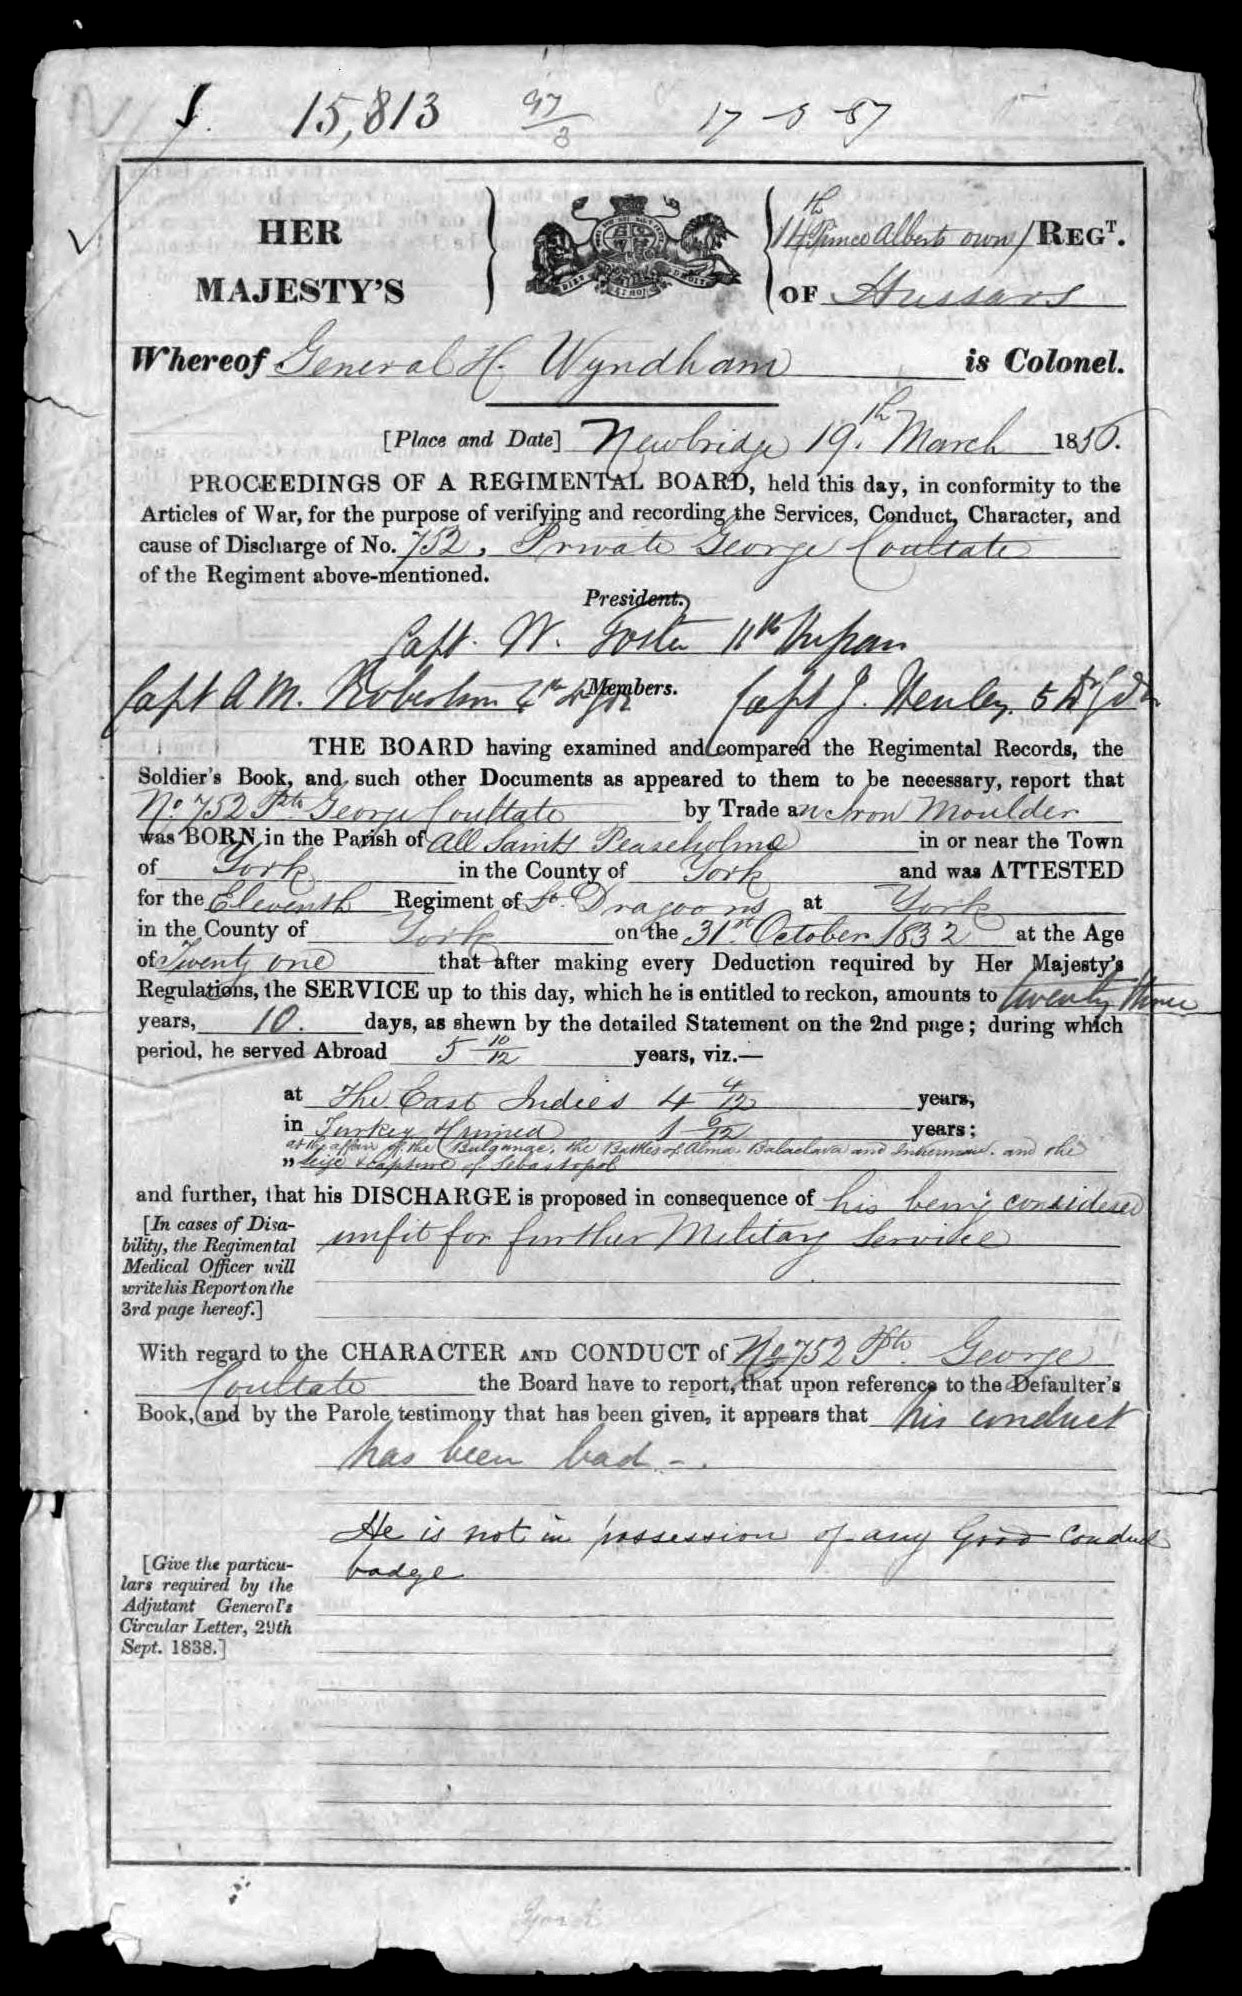 15,813 97/3 17-3-57
HER MAJESTY'S
11th Prince Alberts own / REGT.
OF Hussars
Whereof General H. Wyndham is Colonel.
[Place and Date] Newbridge 19th March 1856.
PROCEEDINGS OF A REGIMENTAL BOARD, held this day, in conformity to the
Articles of War, for the purpose of verifying and recording the Services, Conduct, Character, and
cause of Discharge of No. 752, Private George Coultate
of the Regiment above-mentioned.
President.
Capt. W. Foster 11th
Members.
Capt A M. Robertson Capt J. Henley
THE BOARD having examined and compared the Regimental Records, the
Soldier's Book, and such other Documents as appeared to them to be necessary, report that
No. 752 Pte George Coultate by Trade an Iron Moulder
was BORN in the Parish of All Saints Peaseholme in or near the Town
of York in the County of York and was ATTESTED
for the Eleventh Regiment of Lt. Dragoons at York
in the County of York on the 31st October 1832 at the Age
of Twenty one that after making every Deduction required by Her Majesty's
Regulations, the SERVICE up to this day, which he is entitled to reckon, amounts to twenty three
years, 10. days, as shewn by the detailed Statement on the 2nd page; during which
period, he served Abroad 5 10/12 years, viz.—
at The East Indies 4 4/12 years,
in Turkey & Crimea 1 6/12 years;
at the affair of the Bulganac, the Battles of Alma, Balaclava and Inkerman. and the
„ seige & capture of Sebastopol
and further, that his DISCHARGE is proposed in consequence of his being considered
[In cases of Disa-
bility, the Regimental
Medical Officer will
write his Report on the
3rd page hereof.]
unfit for further Military Service
With regard to the CHARACTER AND CONDUCT of No 752 Pte. George
Coultate the Board have to report, that upon reference to the Defaulter's
Book, and by the Parole testimony that has been given, it appears that his conduct
has been bad -.
He is not in possession of any Good Conduct
badge
[Give the particu-
lars required by the
Adjutant General's
Circular Letter, 29th
Sept. 1838.]
York